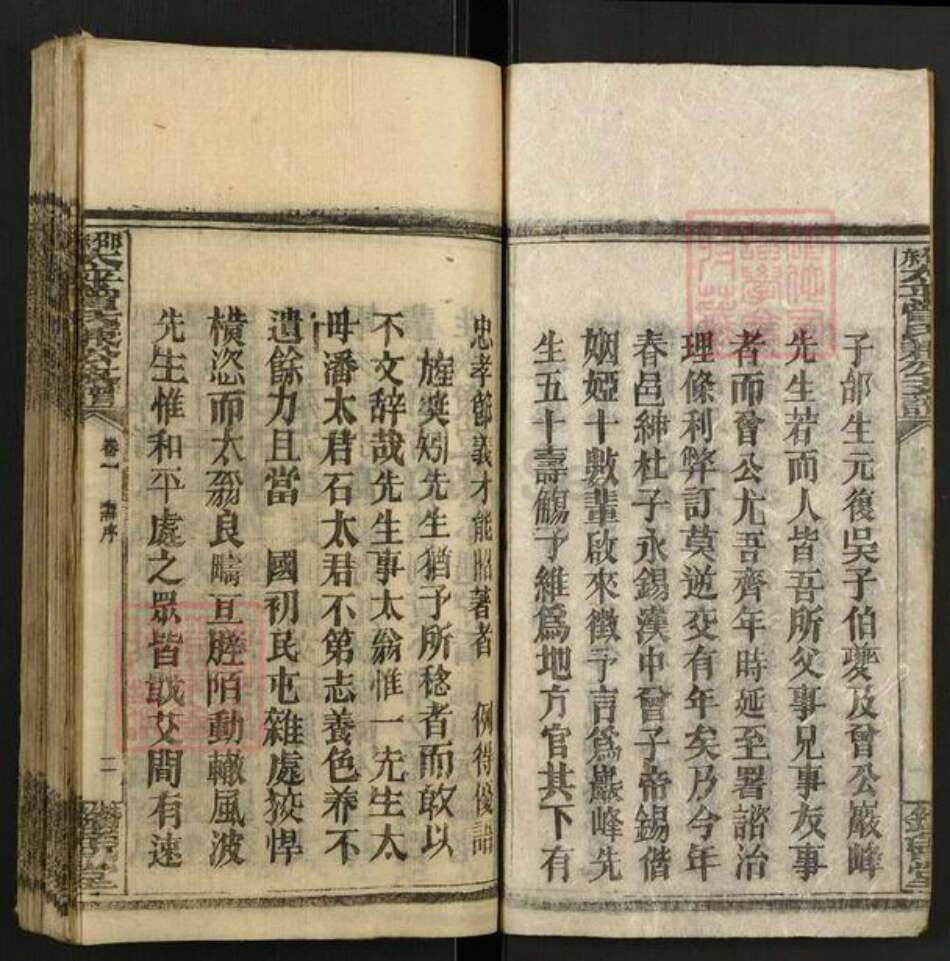 子郃生元復吳子伯夔及曾公巖峰
先生若而人皆吾所父事兄事友事
者而曾公尤吾齊年時延至署諮治
理條利弊訂莫逆交有年矣乃今年
春邑紳杜子永錫漢中曾子帝錫偕
姻婭十數輩啟來徵予言爲巖峰先
生五十壽觴予維爲地方官其下有
忠孝節義才能昭著者 例得優詣
旌奬矧先生猶予所稔者而敢以
不文辞哉先生事太翁惟一先生太
母潘太君石太君不第志養色养不
遺餘力且當 國初民屯雜處獷悍
橫恣而太翁良疇亘膛陌動轍風波
先生惟和平處之眾皆戢艾間有速
卷一 壽序
二